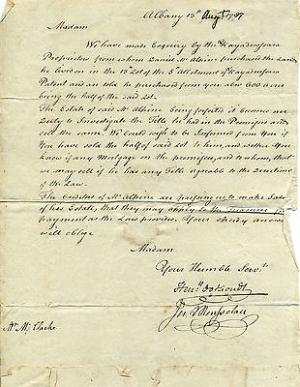 Albany 15th Augt 1787
Madam
We have made Enquiry by the Kayaderossera
Proprietors from whom Daniel Mc Alpine purchased the Land
he lived on in the 13 Lot of the 5th Allotment of Kayaderossera
Patent and on who he purchased from you abo 600 acres
being the half of the said Lot.
The Estate of said Mc Alpine being forfeited it becomes our
Duty to Investigate the Title he had in the Premises and
sell the same. We could wish to be Informed from You if
You have sold the half of said Lot to him, and wether You
know of any Mortgage on the premises, and to whom, that
we may sell if he has any Title agreable to the Directions
of the Law.
The Creditors of Mc Alpine are pressing us to make Sale
of his Estate, that they may apply to the Treasurer for
payment as the Law provides. Your speedy answer
will oblige
Madam
Your Humble Servts
Henry Oothoudt
Jer. V Rensselaer
Mrs Mc Clarke